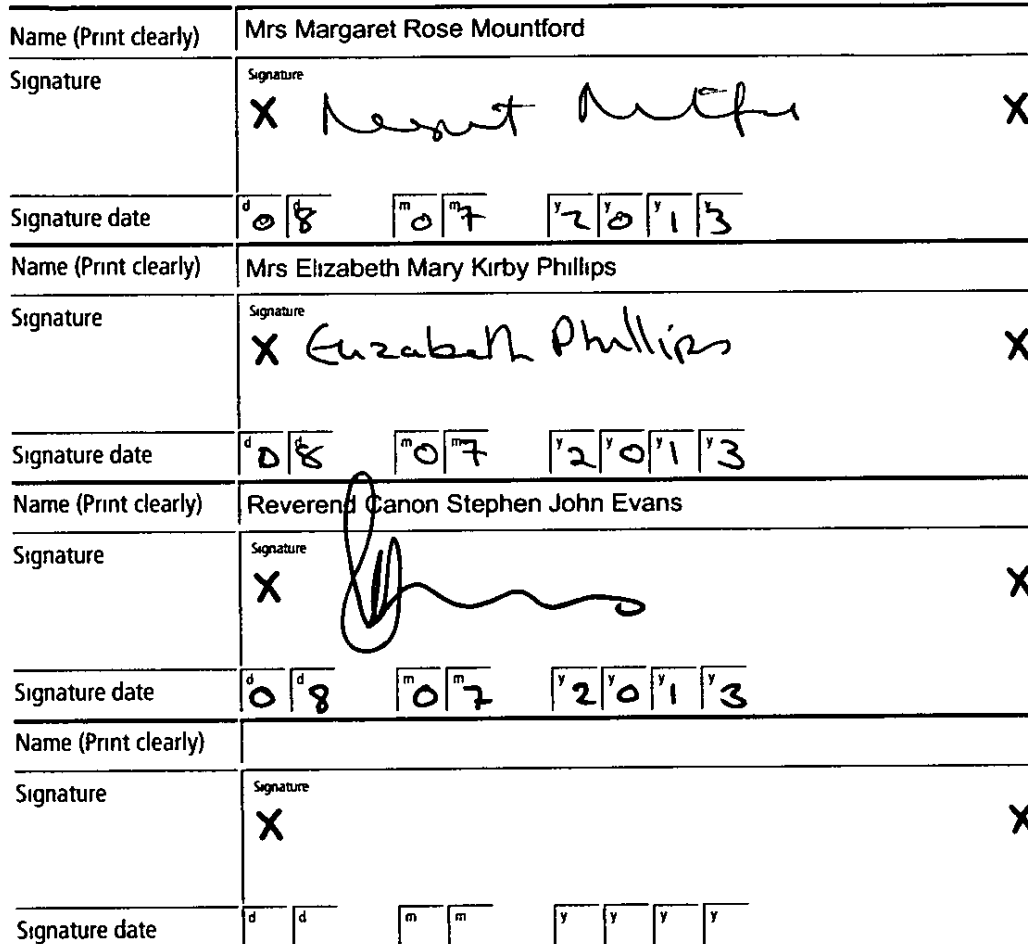 Name (Print clearly) Mrs Margaret Rose Mountford
Signature Signature
X X
Signature date d 0 d 8 m 0 m 7 y 2 y 0 y 1 y 3
Name (Print clearly) Mrs Elizabeth Mary Kirby Phillips
Signature Signature
X Elizabeth Phillips X
Signature date d 0 d 8 m 0 m 7 y 2 y 0 y 1 y 3
Name (Print clearly) Reverend Canon Stephen John Evans
Signature Signature
X X
Signature date d 0 d 8 m 0 m 7 y 2 y 0 y 1 y 3
Name (Print clearly)
Signature Signature
X X
Signature date d d m m y y y y